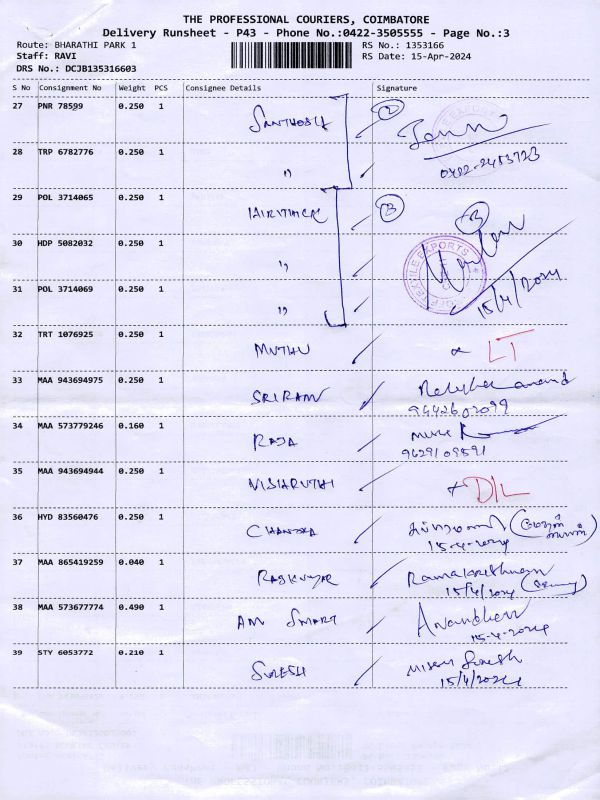 THE PROFESSIONAL COURIERS, COIMBATORE
Delivery Runsheet - P43 - Phone No.:0422-3505555 - Page No.:3
Route: BHARATHI PARK 1 RS No.: 1353166
Staff: RAVI RS Date: 15-Apr-2024
DRS No.: DCJB135316603
S No Consignment No Weight PCS Consignee Details Signature
27 PNR 78599 0.250 1 SANTHOSH 2
28 TRP 6782776 0.250 1 " 0422-2453723
29 POL 3714065 0.250 1 3
30 HDP 5082032 0.250 1 " 3
TEXTILE EXPORTS
31 POL 3714069 0.250 1 " 15/4/2024
32 TRT 1076925 0.250 1 MUTHU LT
33 MAA 943694975 0.250 1 SRIRAM
9442602099
34 MAA 573779246 0.160 1 RAJA
9629109591
35 MAA 943694944 0.250 1 VISHRUTHI D/L
36 HYD 83560476 0.250 1 CHANDRA
15-4-2024
37 MAA 865419259 0.040 1 RAJKUMAR Ramakrishnan
15/4/2024
38 MAA 573677774 0.490 1 AM SMART Anandhan
15-4-2024
39 STY 6053772 0.210 1 SURESH Suresh
15/4/2024